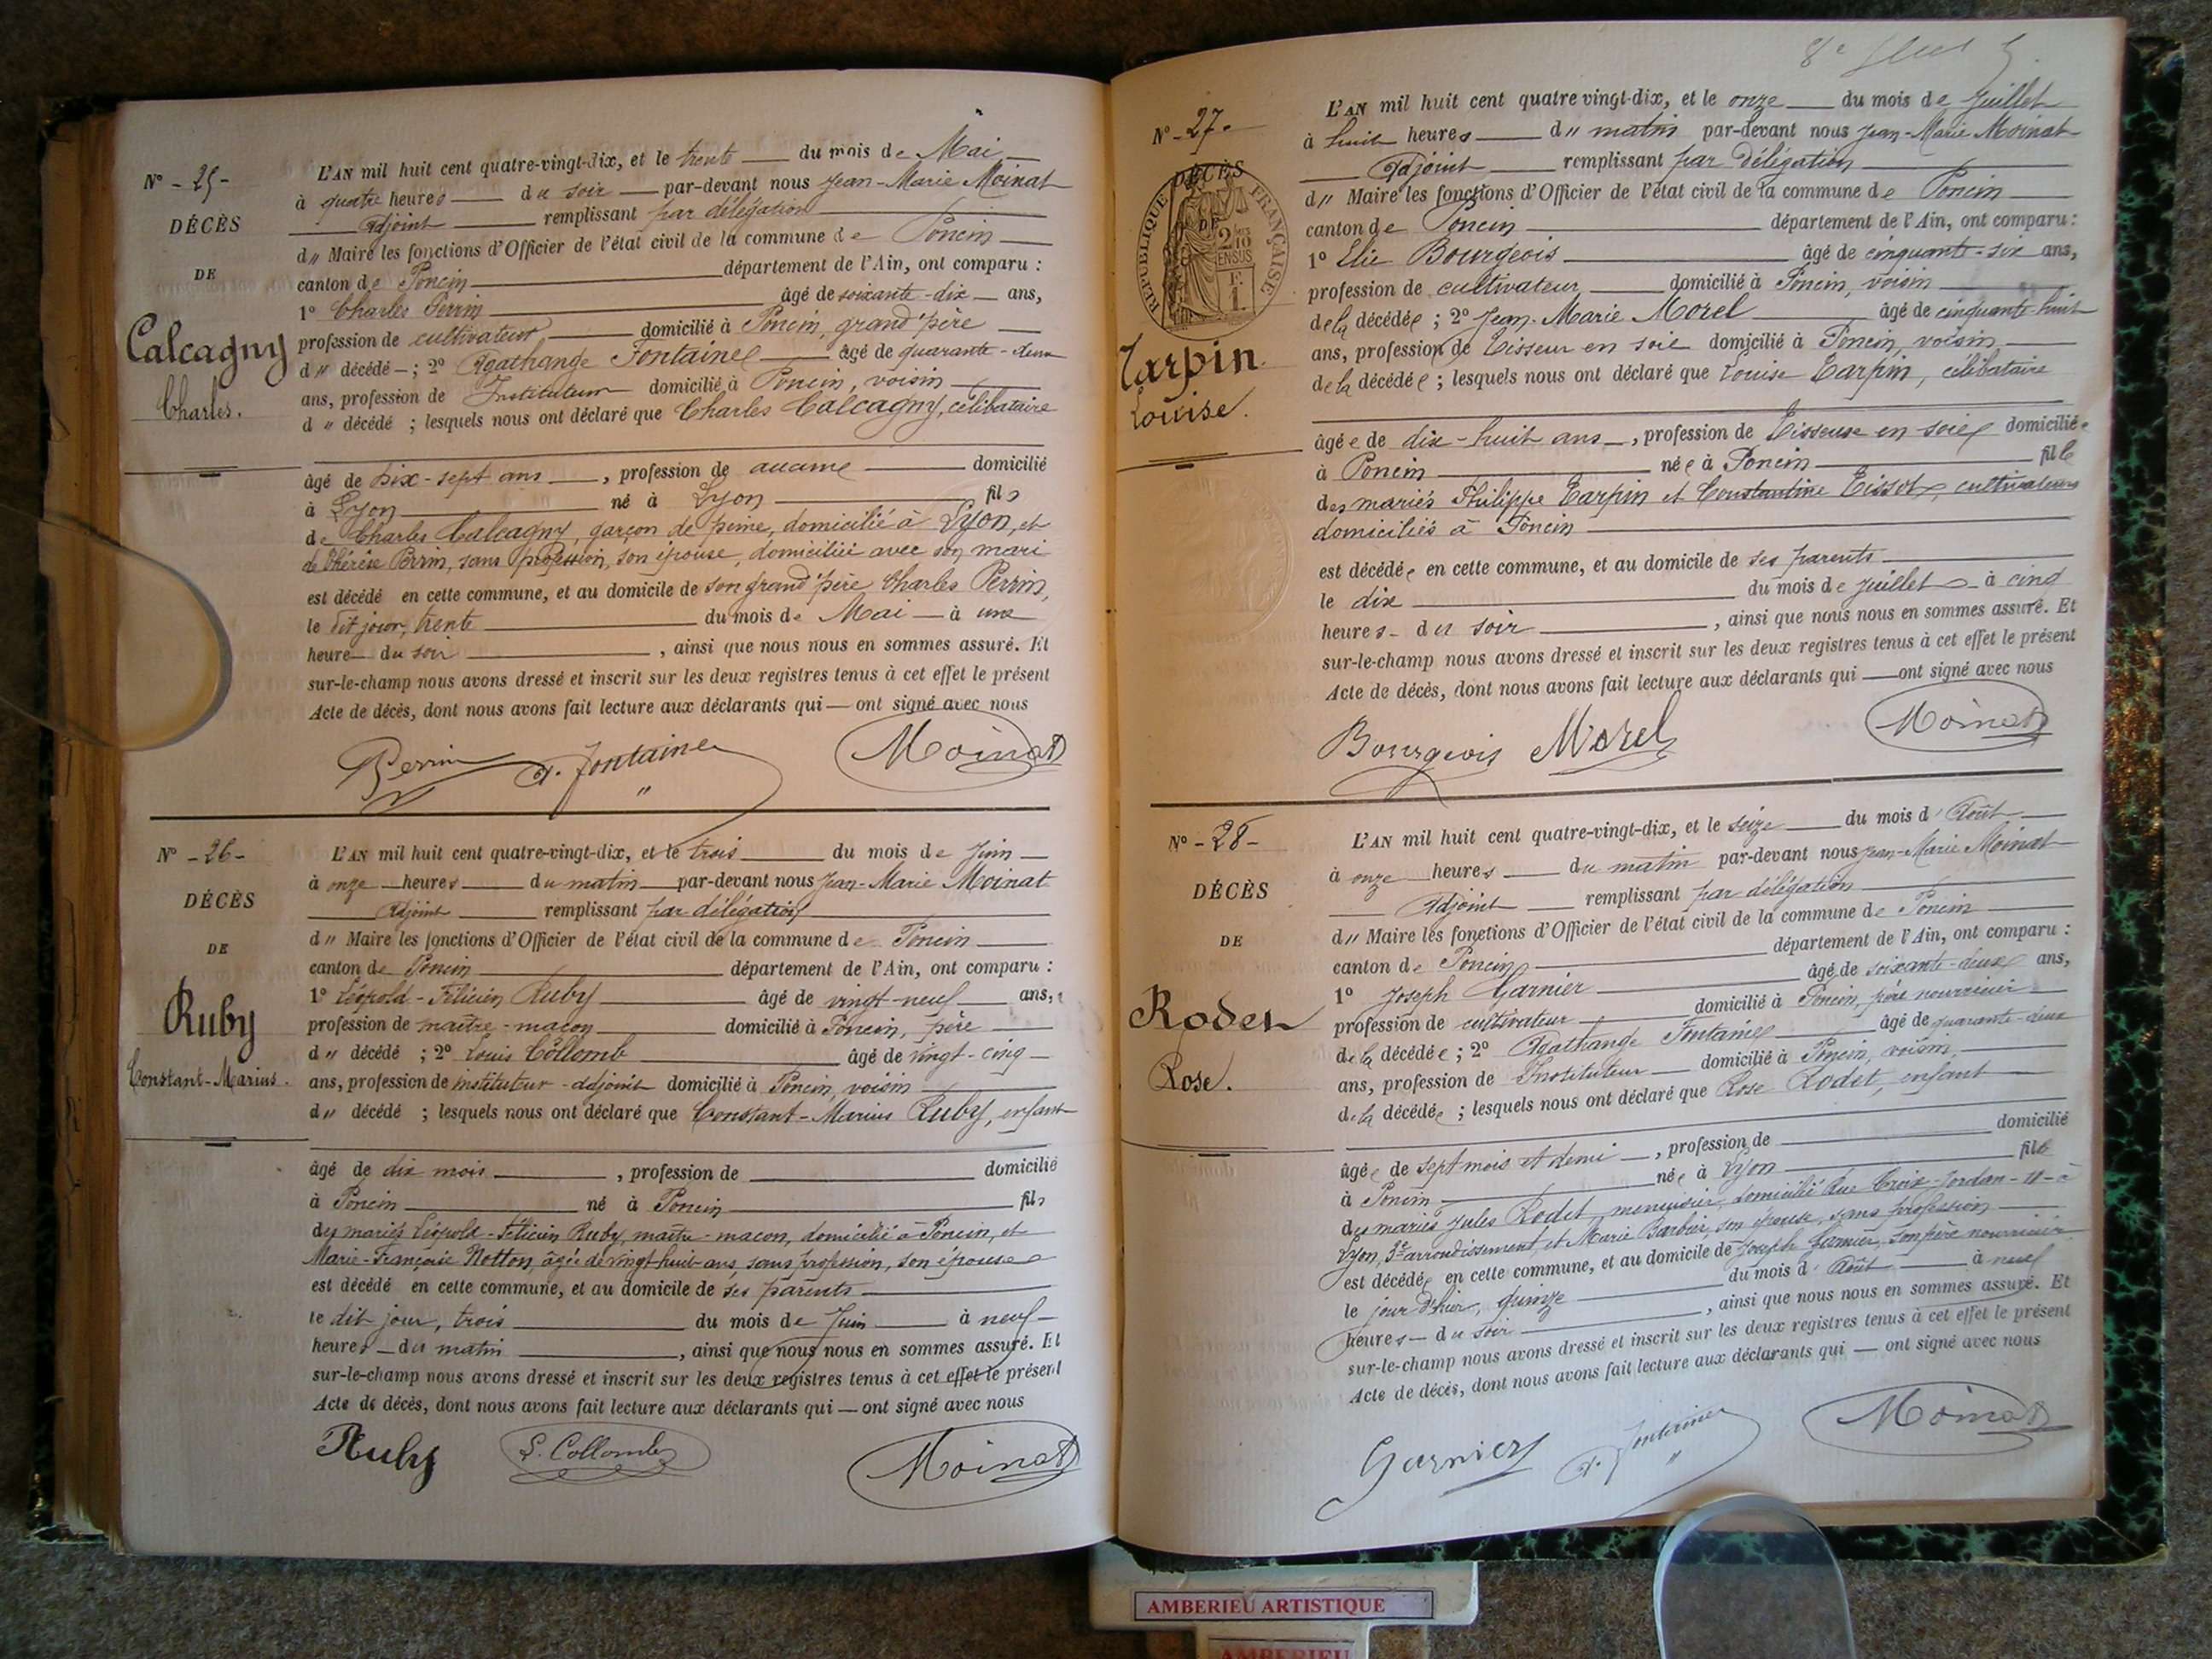 N° - 25 -
DÉCÈS
DE
Calcagny
Charles.
L'AN mil huit cent quatre-vingt-dix, et le trente du mois de Mai
à quatre heures du soir par-devant nous Jean-Marie Moinat
Adjoint remplissant par délégation
d" Maire les fonctions d'Officier de l'état civil de la commune de Poncin
canton de Poncin département de l'Ain, ont comparu :
1° Charles Perrin âgé de soixante-dix ans,
profession de cultivateur domicilié à Poncin, grand'père
d" décédé ; 2° Agathange Fontaine âgé de quarante-deux
ans, profession de Instituteur domicilié à Poncin, voisin
d " décédé ; lesquels nous ont déclaré que Charles Calcagny, célibataire
âgé de dix-sept ans , profession de aucune domicilié
à Lyon né à Lyon fils
de Charles Calcagny, garçon de peine, domicilié à Lyon, et
de Thérèse Perrin, sans profession, son épouse, domiciliée avec son mari
est décédé en cette commune, et au domicile de son grand'père Charles Perrin,
le dit jour, trente du mois de Mai à une
heure du soir , ainsi que nous nous en sommes assuré. Et
sur-le-champ nous avons dressé et inscrit sur les deux registres tenus à cet effet le présent
Acte de décès, dont nous avons fait lecture aux déclarants qui — ont signé avec nous
Perrin A. Fontaine Moinat
N° - 26 -
DÉCÈS
DE
Ruby
Constant-Marius.
L'AN mil huit cent quatre-vingt-dix, et le trois du mois de Juin
à onze heures du matin par-devant nous Jean-Marie Moinat
Adjoint remplissant par délégation
d" Maire les fonctions d'Officier de l'état civil de la commune de Poncin
canton de Poncin département de l'Ain, ont comparu :
1° Léopold-Félicien Ruby âgé de vingt-neuf ans,
profession de maître-maçon domicilié à Poncin, père
d" décédé ; 2° Louis Collomb âgé de vingt-cinq
ans, profession de instituteur-adjoint domicilié à Poncin, voisin
d" décédé ; lesquels nous ont déclaré que Constant-Marius Ruby, enfant
âgé de dix mois , profession de domicilié
à Poncin né à Poncin fils
des mariés Léopold-Félicien Ruby, maître-maçon, domicilié à Poncin, et
Marie-Françoise Notton, âgée de vingt-huit ans, sans profession, son épouse
est décédé en cette commune, et au domicile de ses parents
le dit jour, trois du mois de Juin à neuf
heures du matin , ainsi que nous nous en sommes assuré. Et
sur-le-champ nous avons dressé et inscrit sur les deux registres tenus à cet effet le présent
Acte de décès, dont nous avons fait lecture aux déclarants qui — ont signé avec nous
Ruby L. Collomb Moinat
8e
N° - 27 -
DÉCÈS
DE
RÉPUBLIQUE FRANÇAISE
2/10 EN SUS
F. 1.
Tarpin
Louise.
L'AN mil huit cent quatre vingt-dix, et le onze du mois de Juillet
à huit heures d" matin par-devant nous Jean-Marie Moinat
Adjoint remplissant par délégation
d" Maire les fonctions d'Officier de l'état civil de la commune de Poncin
canton de Poncin département de l'Ain, ont comparu :
1° Elie Bourgeois âgé de cinquante-six ans,
profession de cultivateur domicilié à Poncin, voisin
de la décédée ; 2° Jean-Marie Morel âgé de cinquante-huit
ans, profession de Tisseur en soie domicilié à Poncin, voisin
de la décédée ; lesquels nous ont déclaré que Louise Tarpin, célibataire
âgée de dix-huit ans , profession de Tisseuse en soie domiciliée
à Poncin née à Poncin fille
des mariés Philippe Tarpin et Constantine Tissot, cultivateurs
domiciliés à Poncin
est décédée en cette commune, et au domicile de ses parents
le dix du mois de Juillet à cinq
heures du soir , ainsi que nous nous en sommes assuré. Et
sur-le-champ nous avons dressé et inscrit sur les deux registres tenus à cet effet le présent
Acte de décès, dont nous avons fait lecture aux déclarants qui — ont signé avec nous
Bourgeois Morel Moinat
N° - 28 -
DÉCÈS
DE
Rodet
Rose.
L'AN mil huit cent quatre-vingt-dix, et le seize du mois d'Août
à onze heures du matin par-devant nous Jean-Marie Moinat
Adjoint remplissant par délégation
d" Maire les fonctions d'Officier de l'état civil de la commune de Poncin
canton de Poncin département de l'Ain, ont comparu :
1° Joseph Garnier âgé de soixante-deux ans,
profession de cultivateur domicilié à Poncin, père nourricier
de la décédée ; 2° Agathange Fontaine âgé de quarante-deux
ans, profession de Instituteur domicilié à Poncin, voisin
de la décédée ; lesquels nous ont déclaré que Rose Rodet, enfant
âgée de sept mois et demi , profession de domicilié
à Poncin née à Lyon fille
des mariés Jules Rodet, menuisier, domicilié Rue Croix-Jordan - 11 - à
Lyon, 3e arrondissement, et Marie Barbier, son épouse, sans profession
est décédée en cette commune, et au domicile de Joseph Garnier, son père nourricier
le jour d'hier, quinze du mois d'Août à neuf
heures du soir , ainsi que nous nous en sommes assuré. Et
sur-le-champ nous avons dressé et inscrit sur les deux registres tenus à cet effet le présent
Acte de décès, dont nous avons fait lecture aux déclarants qui — ont signé avec nous
Garnier A. Fontaine Moinat
AMBERIEU ARTISTIQUE
AMBERIEU